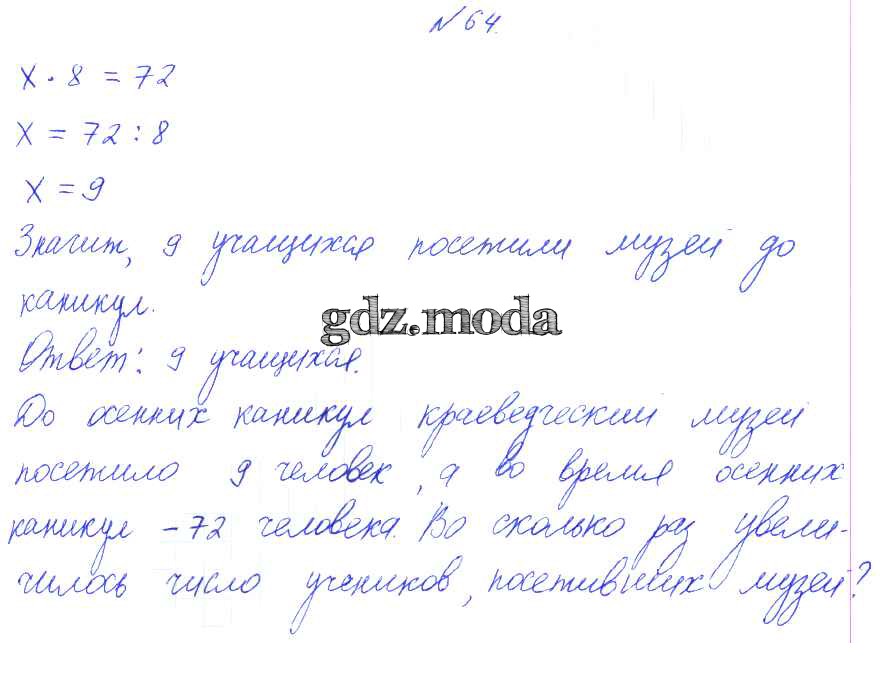 № 64.
x · 8 = 72
x = 72 : 8
x = 9
Значит, 9 учащихся посетили музей до
каникул.
gdz.moda
Ответ: 9 учащихся.
До осенних каникул краеведческий музей
посетило 9 человек, а во время осенних
каникул – 72 человека. Во сколько раз увели-
чилось число учеников, посетивших музей?